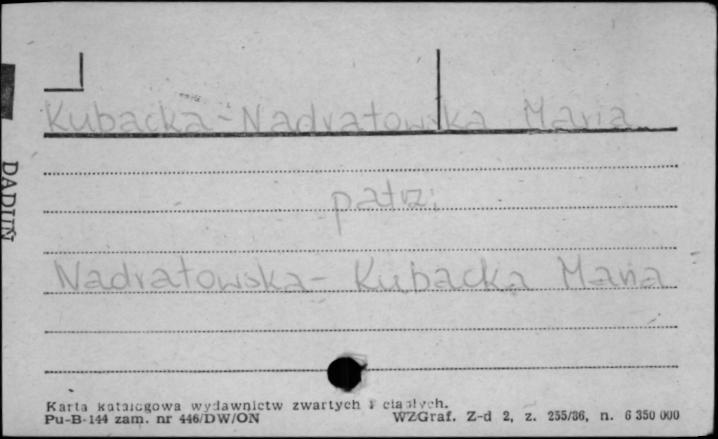 Kubacka-Nadratowska Maria
patrz:
Nadratowska-Kubacka Maria
DADUŃ
Karta katalogowa wydawnictw zwartych i ciągłych.
Pu-B-144 zam. nr 446/DW/ON WZGraf. Z-d 2, z. 255/86, n. 6 350 000